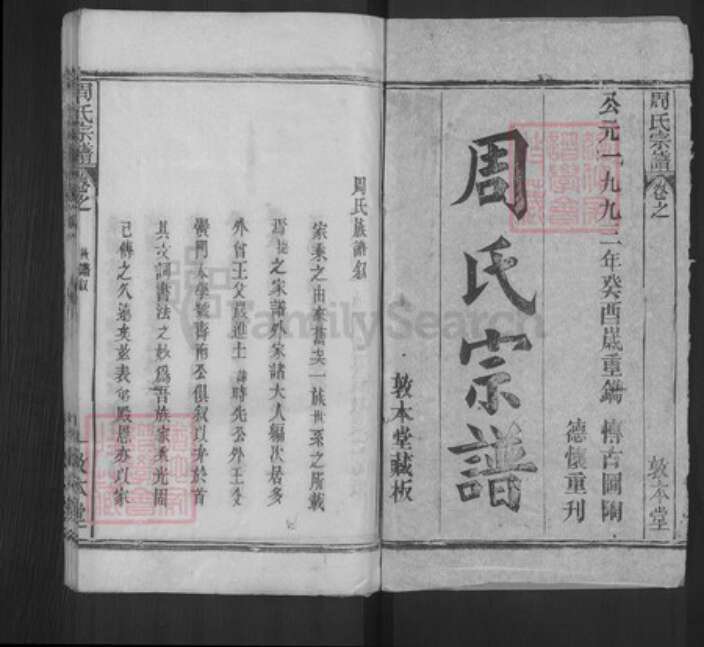 周氏宗譜
卷之
敦本堂
公元一九九三年癸酉歲重鐫
博古圖陶
德懷重刊
周氏宗譜
敦本堂藏板
周氏族譜叙
家乘之由來舊矣一族世系之所載
焉之家譜外家諸大人編次居多
外曾王父歲進士時先公外王父
黌門本學公俱叙以弁於首
其文詞書法之妙為吾族家乘光固
已傳之久遠矣茲表殿恩亦以家
周氏宗譜
卷之
譜叙
敦本堂
FamilySearch